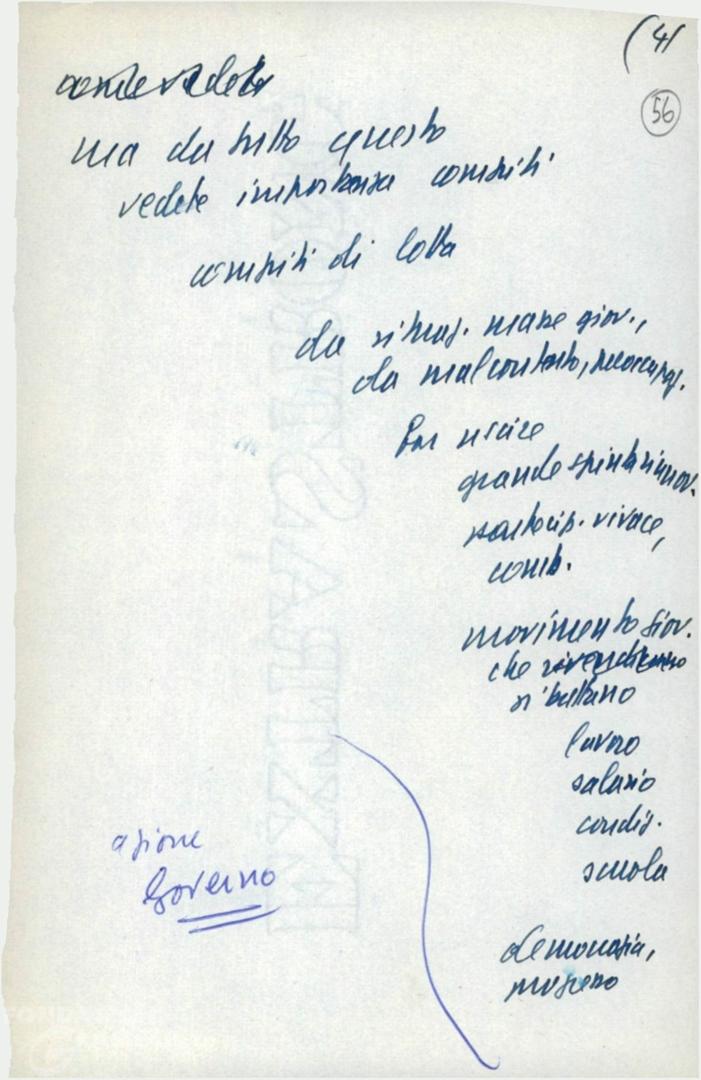 (41
56
come vedete
ma da tutto questo
vedete importanza compiti
compiti di lotta
da situaz. masse giov.,
da malcontento, preoccupaz.
Far uscire
grande spinta rinnov.
partecip. vivace,
comb.
movimento giov.
che rivendicano
si battano
lavoro
salario
condiz.
scuola
democrazia,
progresso
azione
Governo